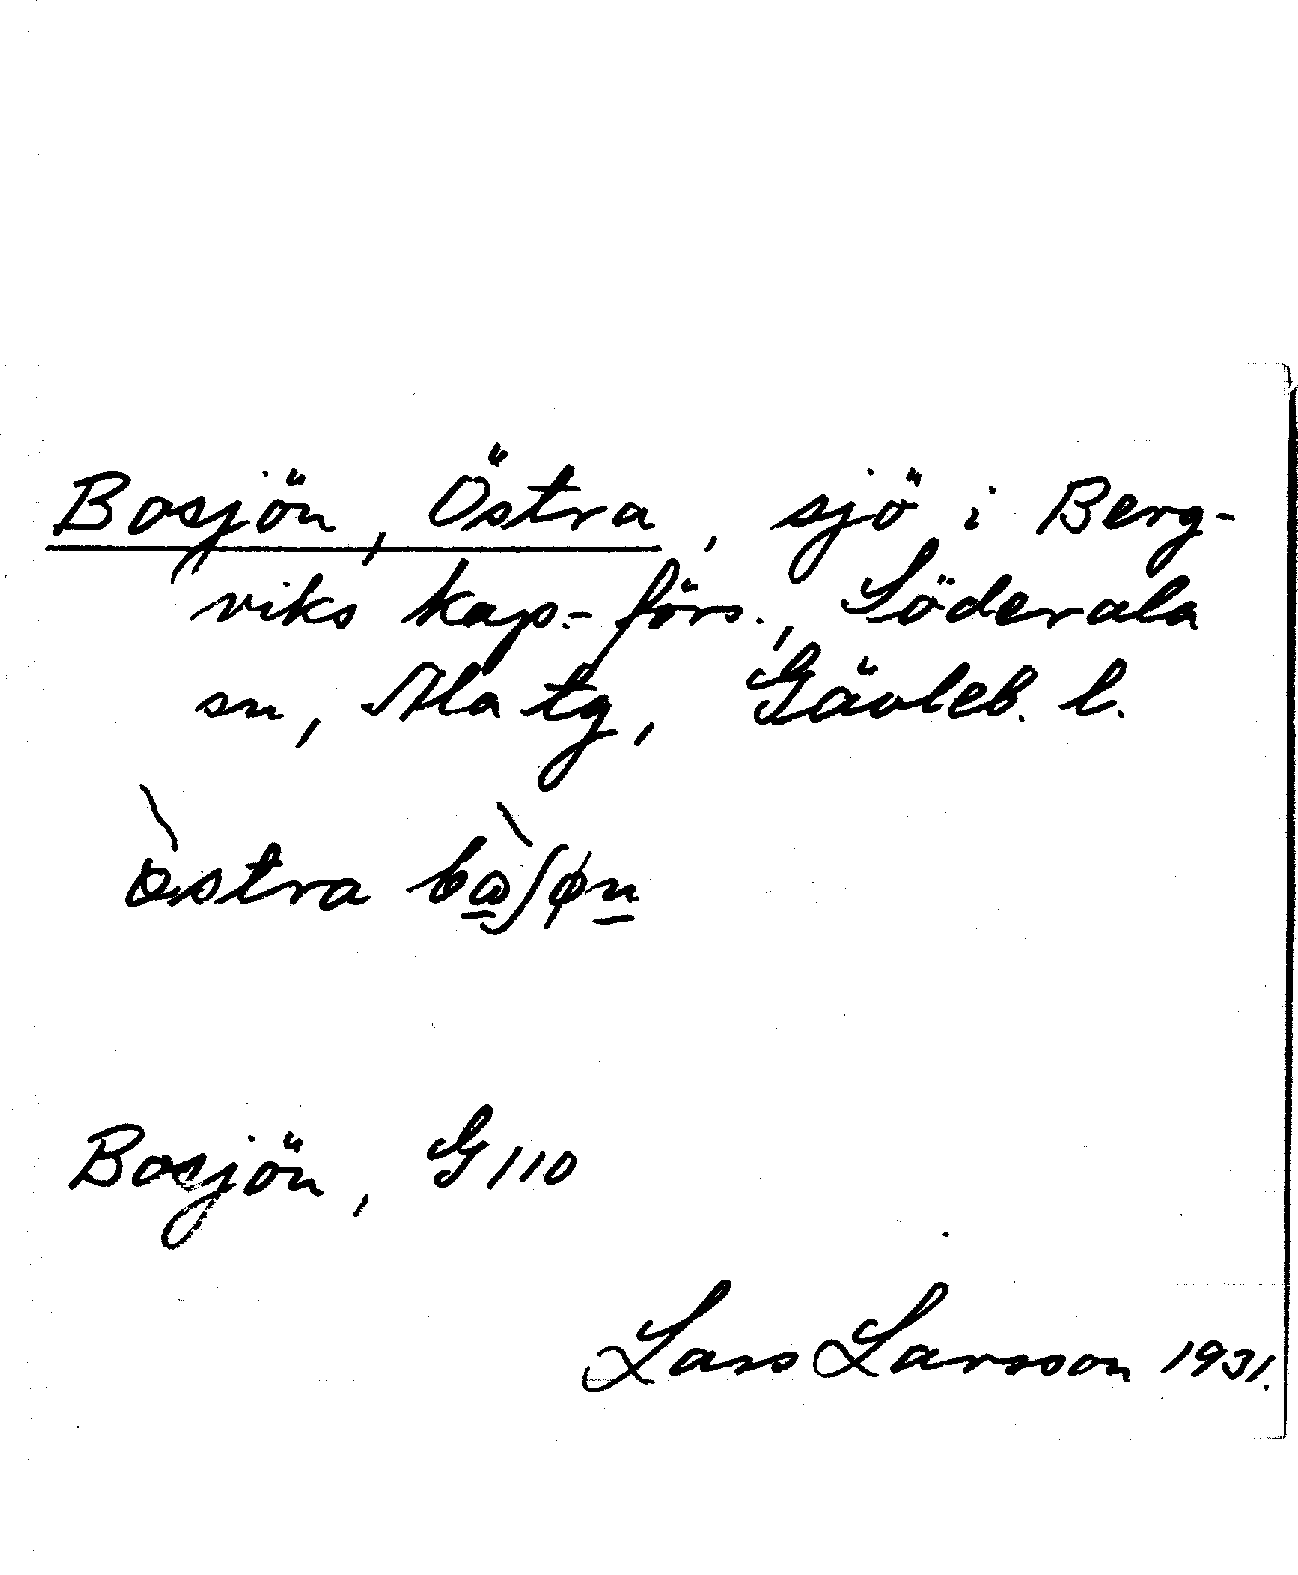 Bosjön, Östra, sjö i Berg-
viks kap.-förs., Söderala
sn, Ala tg, Gävleb. l.
östra bωʃøn
Bosjön, G 110
Lars Larsson 1931.